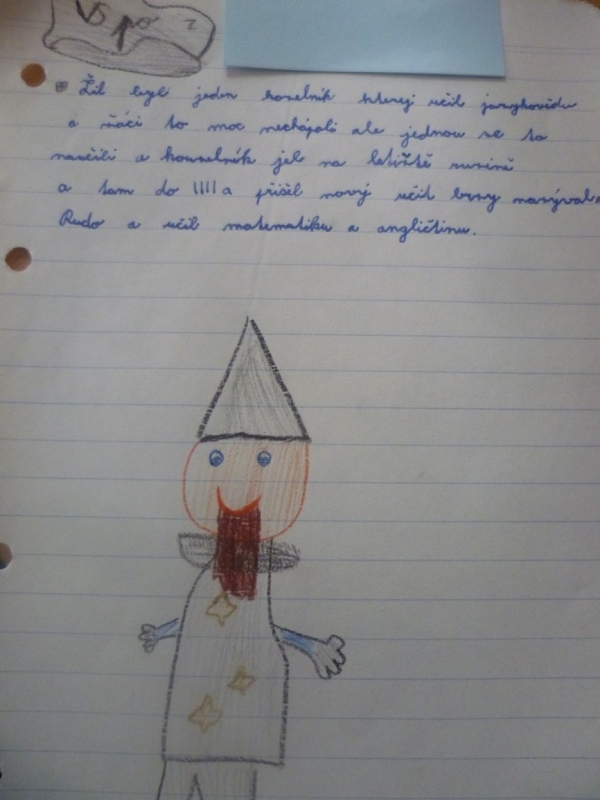 Žil byl jeden kouzelník kterej učil jazykovědu
a žáci to moc nechápali ale jednou se to
naučili a kouzelník jel na letiště
a tam do IIII a přišel nový učit brvy
Rudo a učil matematiku a angličtinu.